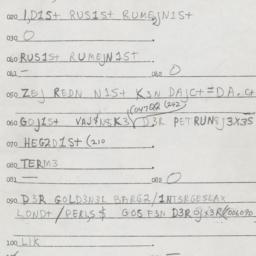 020 I,D1S+ RUS1S+ RUMEJN1S+
030 O
060 RUS1S+ RUMEJN1S+
061 — 062 O
050 ZEJ REDN N1S+ K3N DAJC+=DA. C+
(047QQ (242)
060 GOJ1S+ VAJ$N$K3 D3R PETRUNSJ3X3S
070 HEGZD1S+ (210
080 TERM3
081 — 082 O
090 D3R GOLD3N3R BARG2/1NTSRGESLAX
LOND+/PERLS$ GOSF3N D3R
100 LIK